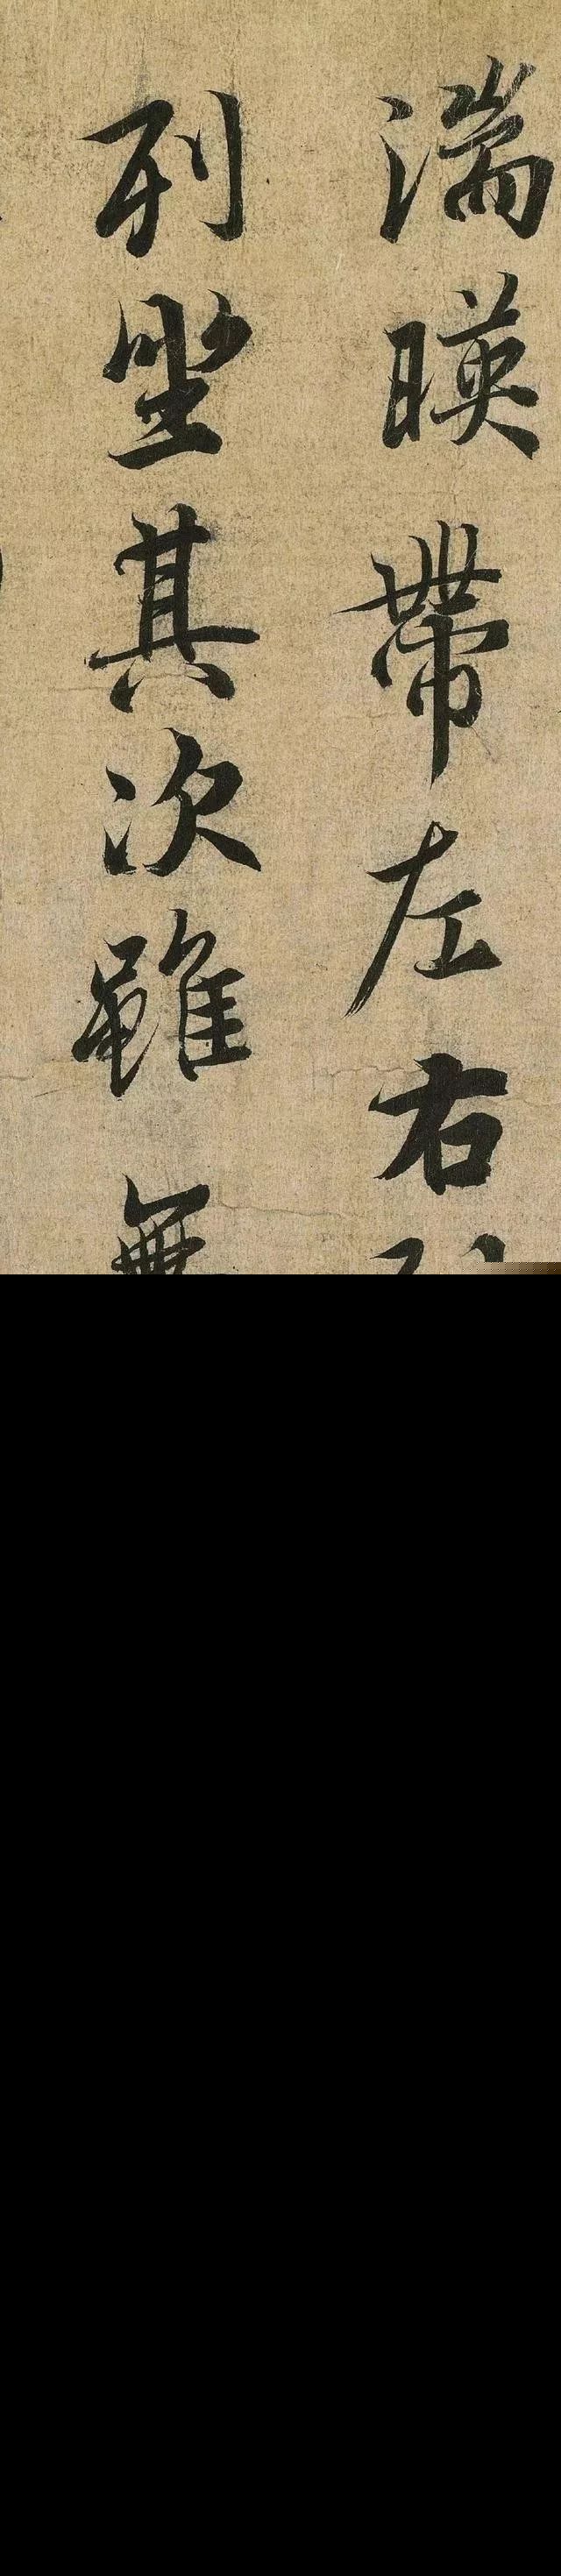 湍暎帶左右
列坐其次雖無